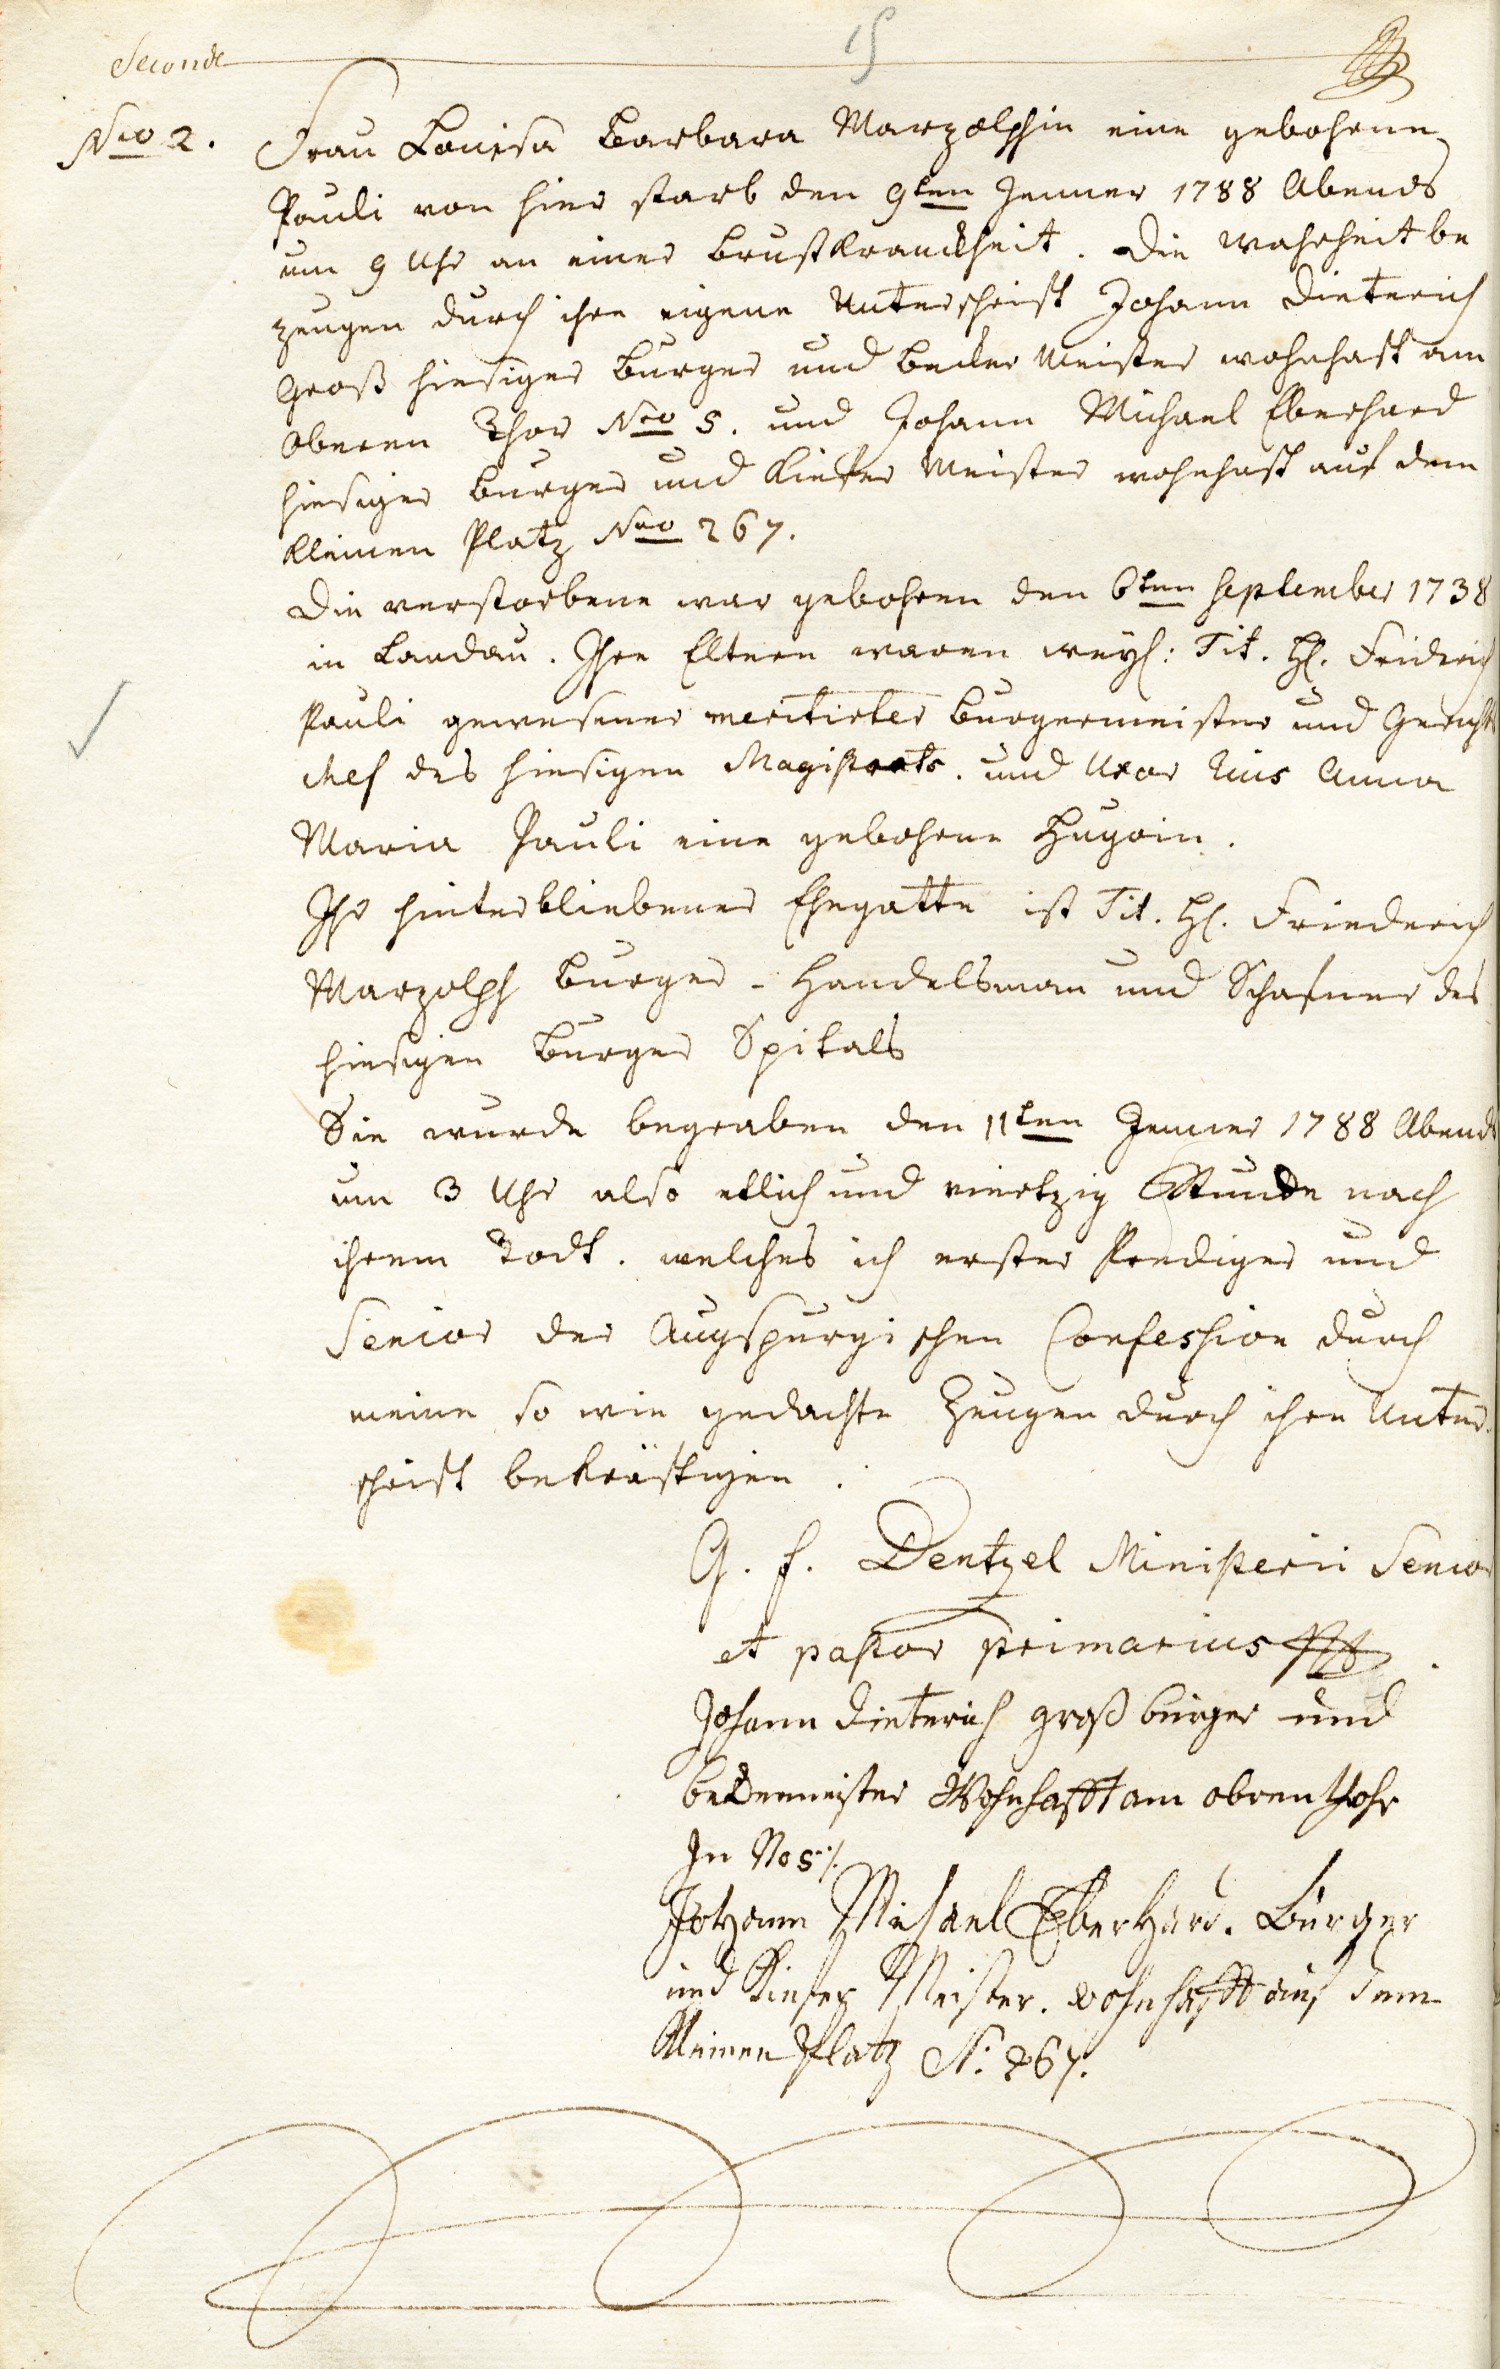 Seconde
Nro 2. Frau Louisa Barbara Marzolphin eine gebohrne
Pauli von hier starb den 9ten Jenner 1788 Abends
um 9 Uhr an einer Brustkranckheit. Die Wahrheit be
zeugen durch ihre eigene Unterschrift Johann Dieterich
Groß hiesiger Burger und Becker Meister wohnhaft am
Oberen Thor Nro 5. und Johann Michael Eberhard
hiesiger Burger und Kiefer Meister wohnhaft auf dem
kleinen Platz Nro 267.
Die verstorbene war gebohren den 6ten September 1738
in Landau. Ihre Eltern waren weyl: Tit. H. Fridrich
Pauli gewesener meritirter Burgermeister und Gerichts
chef des hiesigen Magistrats. und Uxor Eius Anna
Maria Pauli eine gebohrne Hugoin.
Ihr hinterbliebener Ehegatte ist Tit. H. Friederich
Marzolph Burger - Handelsman und Schafner des
hiesigen Burger Spitals
Sie wurde begraben den 11ten Jenner 1788 Abends
um 3 Uhr also etlich und viertzig Stunde nach
ihrem Todt. welches ich erster Prediger und
Senior der Augspurgischen Confession durch
meine so wie gedachte Zeugen durch ihre Unter-
schrift bekräftigen.
G. F. Dentzel Ministerii Senior
et pastor primarius
Johann Dieterich Groß bürger und
beckermeister Wohnhafft am obren thohr
In No 5 ·/.
Johann Michael Eberhard. Bürger
und Kiefer Meister. wohnhafft auf dem
kleinen Platz N: 267.